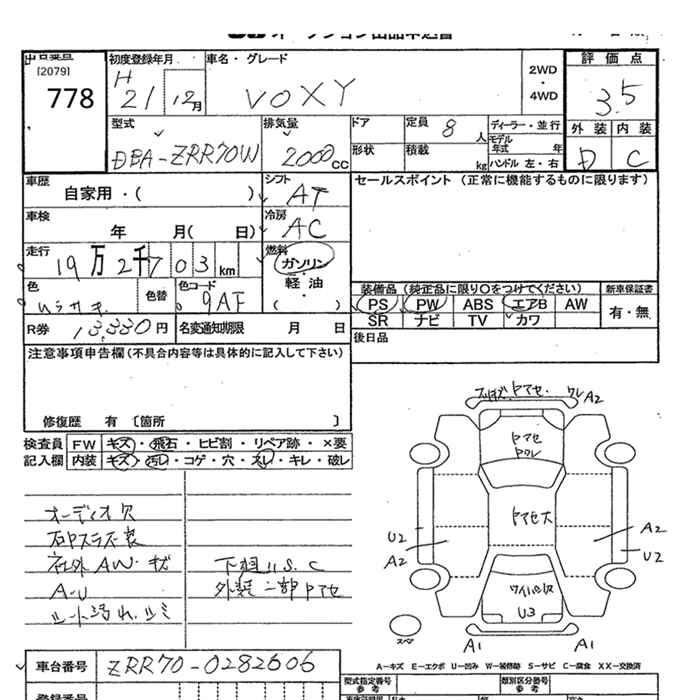 オークション出品申込書
出品番号 初度登録年月 車名・グレード 2WD・4WD 評価点
[2079] 778 H 21 12月 VOXY 3.5
外装 内装
D C
型式 排気量 ドア 定員 8人 ディーラー・並行
DBA-ZRR70W 2000cc 形状 積載 kg モデル年式 年
ハンドル 左・右
車歴 自家用・( ) シフト AT セールスポイント (正常に機能するものに限ります)
車検 年 月( 日) 冷房 AC
走行 19万2千703km 燃料 ガソリン・軽油・( )
色 ムラサキ 色替 色コード 9AF
装備品 (純正品に限り○をつけてください) 新車保証書
PS PW ABS エアB AW 有・無
SR ナビ TV カワ
R券 13,330円 名変通知期限 月 日 後日品
注意事項申告欄(不具合内容等は具体的に記入して下さい)
修復歴 有 〔箇所 〕
検査員 FW キズ・飛石・ヒビ割・リペア跡・×要
記入欄 内装 キズ・汚レ・コゲ・穴・スレ・キレ・破レ
オーディオ欠
社外AW・キズ
A-U
シート汚れ、シミ
下廻りS.C
外装一部ヤケ
A2
U2
A2
A2
U2
U3
スペア
A1
A1
A-キズ E-エクボ U-凹み W-補修跡 S-サビ C-腐食 XX-交換済
車台番号 ZRR70-0282606
型式指定番号 参考 類別区分番号 参考
登録番号